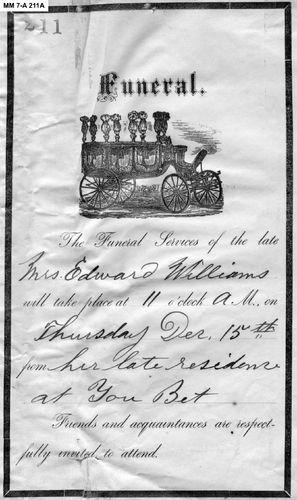 MM 7-A 211A
211
Funeral.
The Funeral Services of the late
Mrs. Edward Williams
will take place at 11 o'clock A.M., on
Thursday Dec, 15th
from her late residence
at You Bet
Friends and acquaintances are respect-
fully invited to attend.